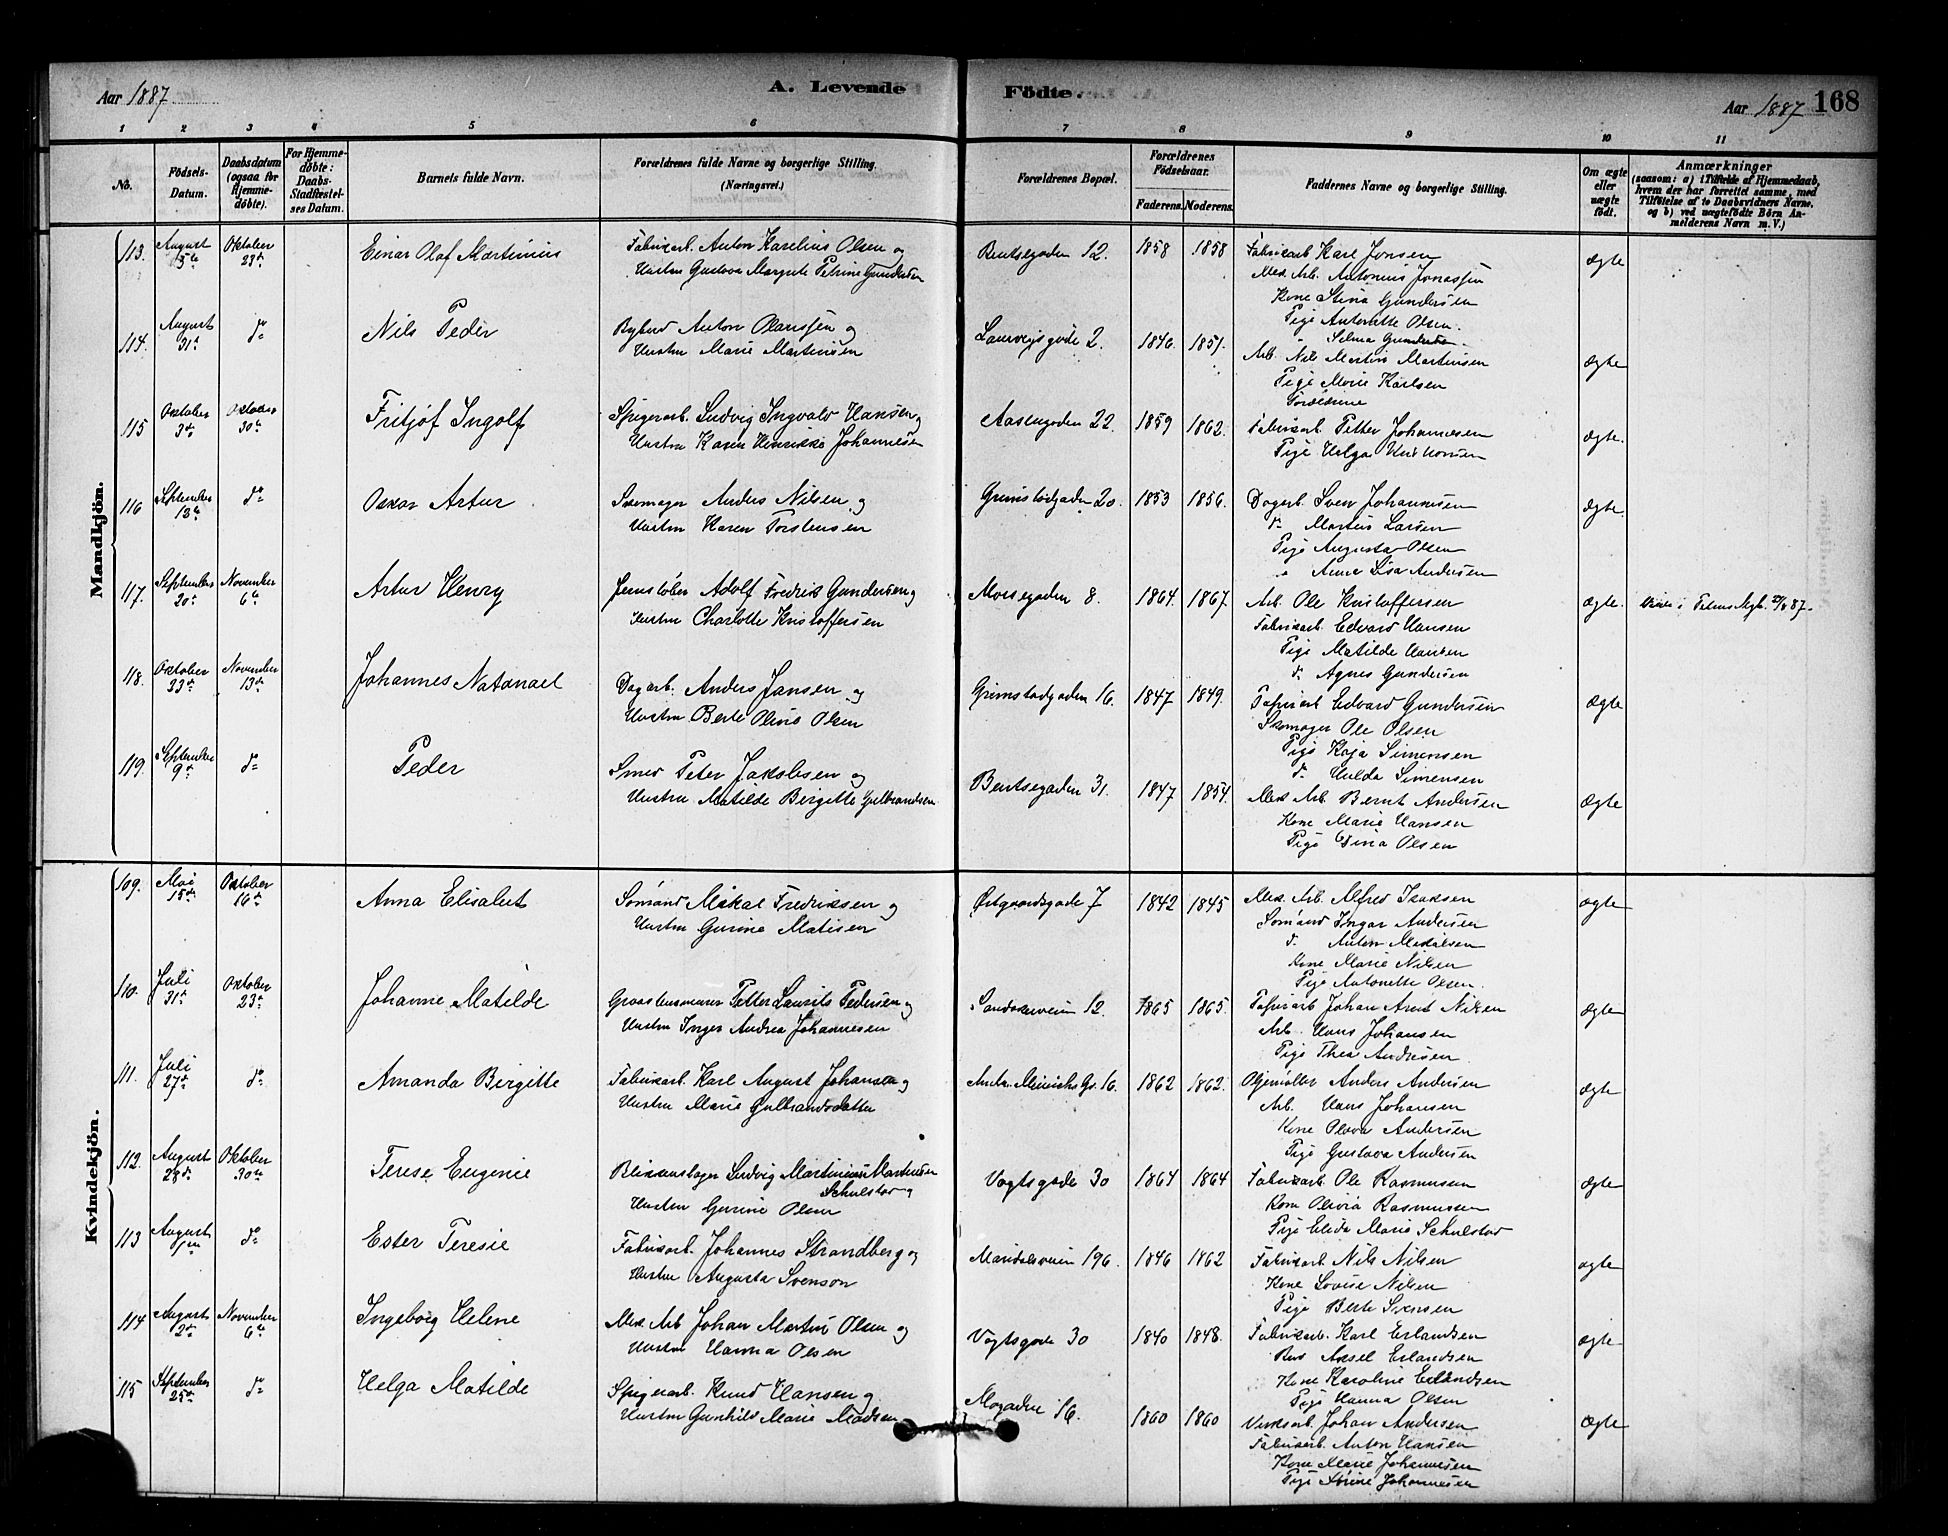 Aar 1887
A. Levende Födte.
Aar 1887
168
1 2 3 4 5 6 7 8 9 10 11
No.
Födsels-Datum.
Daabsdatum (ogsaa for Hjemmedöbte).
For Hjemmedöbte: Daabs-Stadfæstelses Datum.
Barnets fulde Navn.
Forældrenes fulde Navne og borgerlige Stilling. (Næringsvei.)
Forældrenes Bopæl.
Forældrenes Födselsaar.
Faderens. Moderens.
Faddernes Navne og borgerlige Stilling.
Om ægte eller uægte födt.
Anmærkninger (saasom: a) i Tilfælde af Hjemmedaab, hvem der har forrettet samme, med Tilföielse af to Daabsvidners Navne, og b) ved uægtefödte Börn Anmelderens Navn m. V.)
Mandkjön.
113. August 5te Oktober 23de Einar Olaf Martinius
Fabrikarb. Anton Karelius Olsen og
Hustru Gustava Margrete Petrine Gundersen
Bentsegaden 12. 1858 1858
Fabrikarb Karl Jonsen
Mek. Arb. Antonius Jonassen
Kone Stina Gundersen
Pige Antonette Olsen.
" Selma Gundersen
ægte
114. August 31te do Nils Peder
Bybud Anton Olaussen og
Hustru Marie Martinsen
Laurvigsgade 2. 1846. 1851.
Arb. Nils Martin Martinsen
Pige Marie Karlsen
Forældrene
ægte
115 Oktober 3die Oktober 30te Fritjof Ingolf
Spigerarb. Ludvig Ingvald Hansen og
Hustru Karen Henrikke Johannesen
Aasengaden 22. 1859 1862.
Fabrikarb. Petter Johannesen
Pige Helga
ægte.
116 September 13de do Oskar Artur
Skomager Anders Nilsen og
Hustru Karen Torstensen
Grimstadgaden 20. 1853 1856.
Dagarb. Sven Johannesen
do Martin Larsen
Pige Augusta Olsen
" Anne Lisa Andersen
ægte.
117. September 20de November 6te Artur Henry
Jernstøber Adolf Fredrik Gundersen og
Hustru Charlotte Kristoffersen
Morsegaden 8. 1864. 1867.
Arb. Ole Kristoffersen
Fabrikarb. Edvard Hansen
Pige Matilde Hansen
do Agnes Gundersen
ægte.
118. Oktober 23de November 13de Johannes Natanael
Dagarb. Anders Jansen og
Hustru Berte Oline Olsen
Grimstadgaden 16. 1847 1849.
Fabrikarb Edvard Gundersen
Skomager Ole Olsen
Pige Kaja Simensen
do Hulda Simensen
ægte
119. September 9de do Peder
Smed Peter Jakobsen og
Hustru Matilde Birgitte Gulbrandsen
Bentsegaden 31. 1847 1854.
Mek. Arb. Bernt Andersen
Kone Marie Hansen
Pige Gina Olsen
ægte
Kvindekjön.
109. Mai 15de Oktober 16de Anna Elisabet
Sømand Mikal Fredriksen og
Hustru Gurine Matisen
Østgaardsgade 7 1842 1845
Mek. Arb. Alfred Isaksen
Sømand Ingar Andersen
do Anton Mikalsen
Kone Marie Nilsen
Pige Antonette Olsen.
ægte
110. Juli 31te Oktober 23de Johanne Matilde
Graastensmurer Petter Laurits Pedersen og
Hustru Inger Andrea Johannesen
Sandakerveien 12. 1865 1865.
Fabrikarb Johan Arnt Nilsen
Arb. Hans Johansen
Pige Thea Andresen
ægte
111. Juli 27de do Amanda Birgitte
Fabrikarb. Karl August Johansen og
Hustru Marie Gulbrandsdatter
16. 1862 1862.
Oljemøller Anders Andersen
Arb. Hans Johansen
Kone Olava Andersen
Pige Gustava Andersen
ægte
112. August 28de Oktober 30te Terese Eugenie
Blikkenslager Ludvig Martinius Martinsen
Schulstad og
Hustru Gurine Olsen
Vogtsgade 30 1864 1864
Fabrikarb. Ole Rasmussen
Kone Olivia Rasmussen
Pige Elida Marie Schulstad
ægte
113 August do Ester Teresie
Fabrikarb. Johannes Strandberg og
Hustru Augusta Svenson
Maridalsveien 196. 1846 1862
Fabrikarb Nils Nilsen
Kone Lovise Nilsen
Pige Berte Svensen
ægte
114 August 2den November 6te Ingeborg Helene
Mek. Arb Johan Martin Olsen og
Hustru Hanna Olsen
Vogtsgade 30 1840 1848.
Fabrikarb. Karl Erlandsen
Axsel Erlandsen
Kone Karoline Erlandsen
Pige Hanna Olsen
ægte
115 September 25de do Helga Matilde
Spigerarb. Knud Hansen og
Hustru Gunhild Marie Madsen
Mogaden 16. 1860 1860
Verksarb. Johan Andersen
Fabrikarb. Anton Hansen
Kone Marie Johannesen
Pige Johannesen
ægte